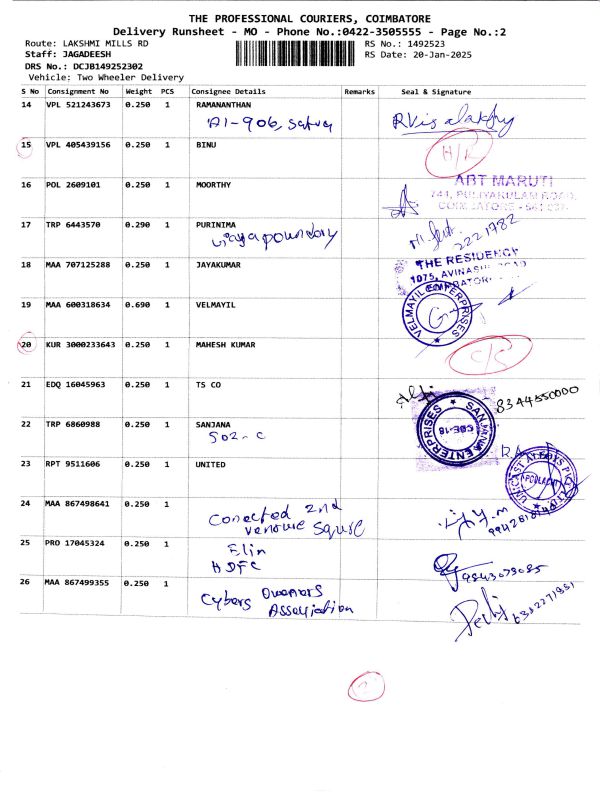 THE PROFESSIONAL COURIERS, COIMBATORE
Delivery Runsheet - MO - Phone No.:0422-3505555 - Page No.:2
Route: LAKSHMI MILLS RD
RS No.: 1492523
Staff: JAGADEESH
RS Date: 20-Jan-2025
DRS No.: DCJB149252302
Vehicle: Two Wheeler Delivery
S No Consignment No Weight PCS Consignee Details Remarks Seal & Signature
14 VPL 521243673 0.250 1 RAMANANTHAN
A1-906,
15 VPL 405439156 0.250 1 BINU
16 POL 2609101 0.250 1 MOORTHY
ABT MARUTI
741, PULIYAKULAM ROAD,
17 TRP 6443570 0.290 1 PURINIMA
2221782
18 MAA 707125288 0.250 1 JAYAKUMAR
THE RESIDENCY
1075, AVINASHI ROAD
19 MAA 600318634 0.690 1 VELMAYIL
VELMAYIL ENTERPRISES
20 KUR 3000233643 0.250 1 MAHESH KUMAR
21 EDQ 16045963 0.250 1 TS CO
8344550000
22 TRP 6860988 0.250 1 SANJANA
502-C
SANJANA ENTERPRISES
CBE-18
23 RPT 9511606 0.250 1 UNITED
24 MAA 867498641 0.250 1
Conected 2nd
Venowe Squre
25 PRO 17045324 0.250 1 Elin
HDFC
9843079085
26 MAA 867499355 0.250 1
Cybers Owenars
Association